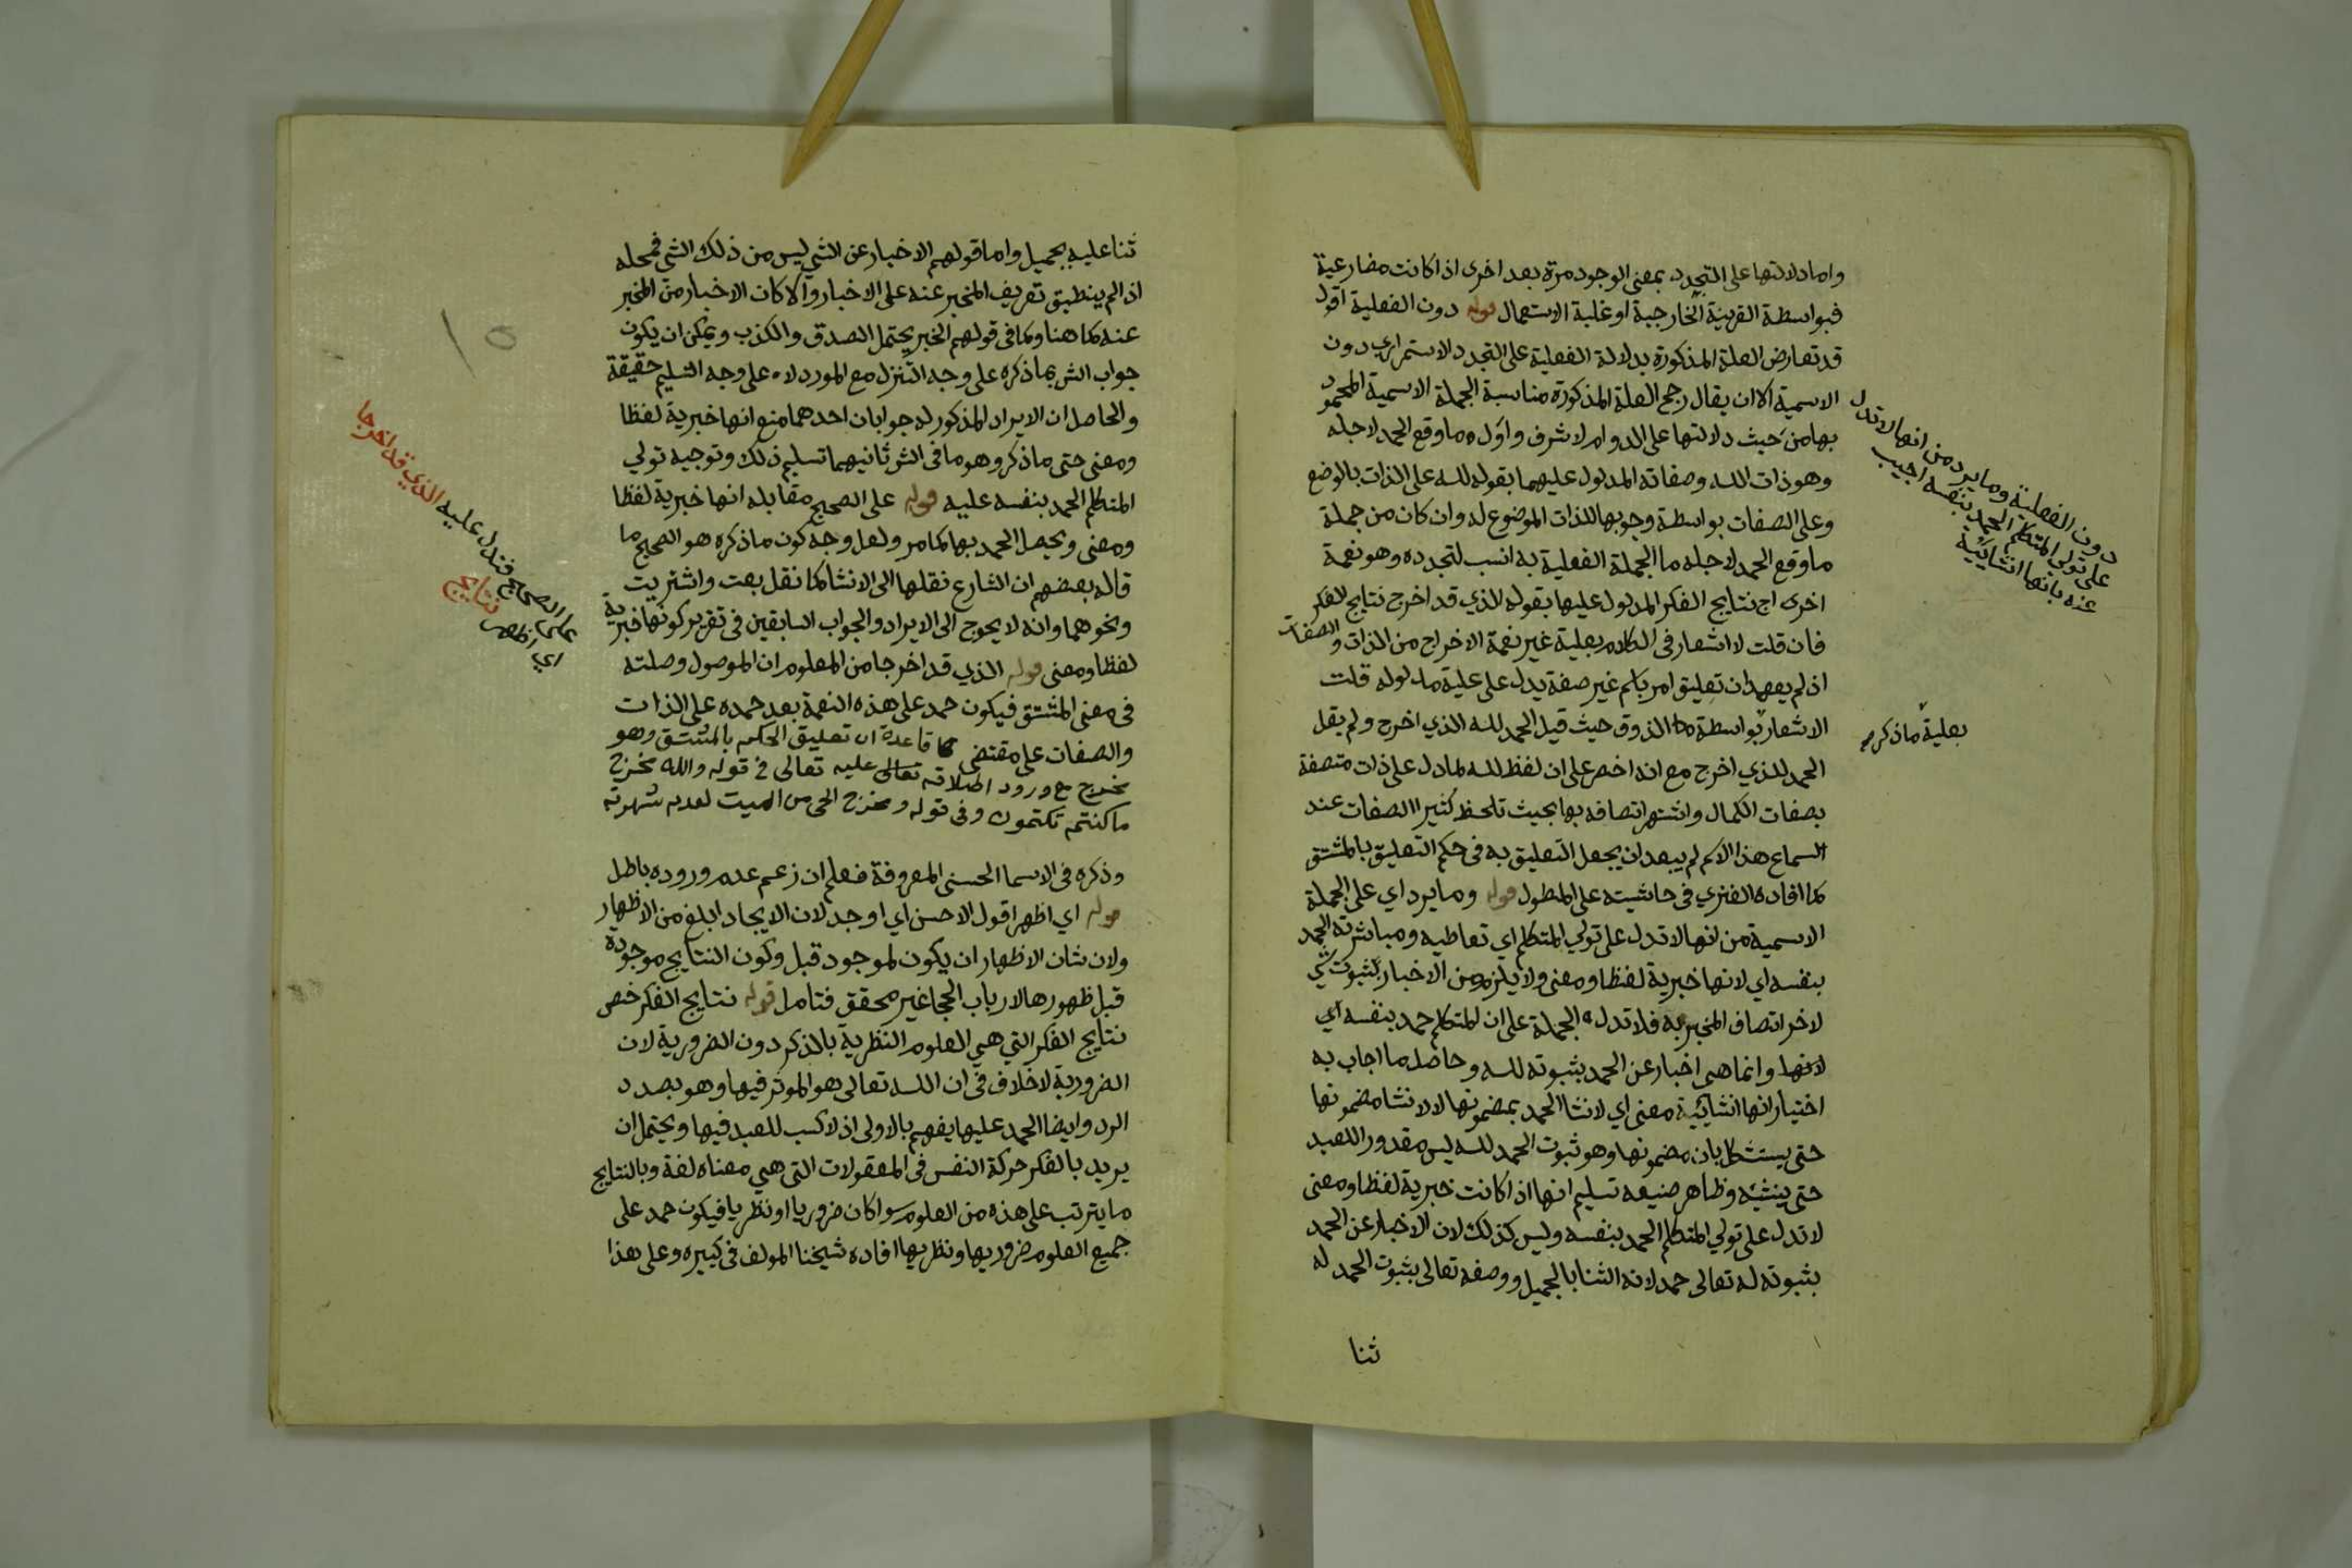 واما دلالتها على التجدد بمعنى الوجود مرة بعد اخرى اذا كانت مضارعية
فبواسطة القرينة الخارجية او غلبة الاستعمال قوله دون الفعلية اقول
قد تعارض العلة المذكورة بدلالة الفعلية على التجدد الاستمراري دون
الاسمية الا ان يقال رجح العلة المذكورة مناسبة الجملة الاسمية المحمود
بها من حيث دلالتها على الدوام لاشرف واول ما وقع الحمد لاجله
وهو ذات الله وصفاته المدلول عليهما بقوله لله على الذات بالوضع
وعلى الصفات بواسطة وجوبها للذات الموضوع له وان كان من جملة
ما وقع الحمد لاجله ما الجملة الفعلية به انسب لتجدده وهو نعمة
اخرى اج نتايج الفكر المدلول عليها بقوله الذي قد اخرج نتايج الفكر
فان قلت لا اشعار في الكلام بعلية غير نعمة الاخراج من الذات والصفات
اذ لم يعهد ان تعليق امر باسم غير صفة يدل على علية مدلوله قلت
الاشعار بواسطة الذوق حيث قيل الحمد لله الذي اخرج ولم يقل
الحمد للذي اخرج مع انه اخصر على ان لفظ لله لما دل على ذات متصفة
بصفات الكمال واشتهر اتصافه بها بحيث تلحظ كثيرا الصفات عند
السماع هذا الاسم لم يبعد ان يجعل التعليق به في حكم التعليق بالمشتق
كما افاده الفنري في حاشيته على المطول قوله وما يرد اي على الجملة
الاسمية من انها لا تدل على تولي المتكلم اي تعاطيه ومباشرته الحمد
بنفسه اي لانها خبرية لفظا ومعنى ولا يلزم من الاخبار بثبوت شي
لاخر اتصاف المخبر به فلا تدل الجملة على ان المتكلم حمد بنفسه اي
لانها وانما هي اخبار عن الحمد بثبوته لله وحاصل ما اجاب به
اختيار انها انشائية معنى اي لانشا الحمد بمضمونها لا لانشا مضمونها
حتى يستشكل بان مضمونها وهو ثبوت الحمد لله ليس مقدورا للعبد
حتى ينشئه وظاهر صنيعه تسليم انها اذا كانت خبرية لفظا ومعنى
لا تدل على تولي المتكلم الحمد بنفسه وليس كذلك لان الاخبار عن الحمد
بثبوته له تعالى حمد لانه الثنا بالجميل ووصفه تعالى بثبوت الحمد له
ثنا
دون الفعلية وما يرد من انها لا تدل
على تولي المتكلم الحمد بنفسه اجيب
عنه بانها انشائية
بعلية ما ذكر
ثنا عليه بجميل واما قولهم الاخبار عن الشي ليس من ذلك الشي فمحله
اذا لم ينطبق تعريف المخبر عنه على الاخبار والا كان الاخبار من المخبر
عنه كما هنا وكما في قولهم الخبر يحتمل الصدق والكذب ويمكن ان يكون
جواب الش بما ذكره على وجه التنزل مع المورد لا على وجه التسليم حقيقة
والحاصل ان الايراد المذكور له جوابان احدهما منع انها خبرية لفظا
ومعنى حتى ما ذكر وهو ما في الش ثانيهما تسليم ذلك وتوجيه تولي
المتكلم الحمد بنفسه عليه قوله على الصحيح مقابله انها خبرية لفظا
ومعنى ويحصل الحمد بها كما مر ولعل وجه كون ما ذكره هو الصحيح ما
قاله بعضهم ان الشارع نقلها الى الانشا كما نقل بعت واشتريت
ونحوهما وانه لا يحوج الى الايراد والجواب السابقين في تقرير كونها خبرية
لفظا ومعنى قوله الذي قد اخرجا من المعلوم ان الموصول وصلته
في معنى المشتق فيكون حمد على هذه النعمة بعد حمده على الذات
والصفات على مقتضى قاعدة ان تعليق الحكم بالمشتق وهو
مخرج مع ورود اطلاقه تعالى عليه تعالى في قوله والله مخرج
ما كنتم تكتمون وفي قوله ومخرج الحي من الميت لعدم شهرته
وذكره في الاسما الحسنى المعروفة فعلم ان زعم عدم وروده باطل
قوله اي اظهر اقول الاحسن اي اوجد لان الايجاد ابلغ من الاظهار
ولان شان الاظهار ان يكون لموجود قبل وكون النتايج موجودة
قبل ظهورها لارباب الحجا غير محقق فتامل قوله نتايج الفكر خص
نتايج الفكر التي هي العلوم النظرية بالذكر دون الضرورية لان
الضرورية لا خلاف في ان الله تعالى هو الموثر فيها وهو بصدد
الرد وايضا الحمد عليها يفهم بالاولى اذ لا كسب للعبد فيها ويحتمل ان
يريد بالفكر حركة النفس في المعقولات التي هي معناه لغة وبالنتايج
ما يترتب على هذه من العلوم سوا كان ضروريا او نظريا فيكون حمد على
جميع العلوم ضروريها ونظريها افاده شيخنا المولف في كبيره وعلى هذا
على الصحيح فتدل عليه الذي قد اخرجا
اي اظهر نتايج
١٥